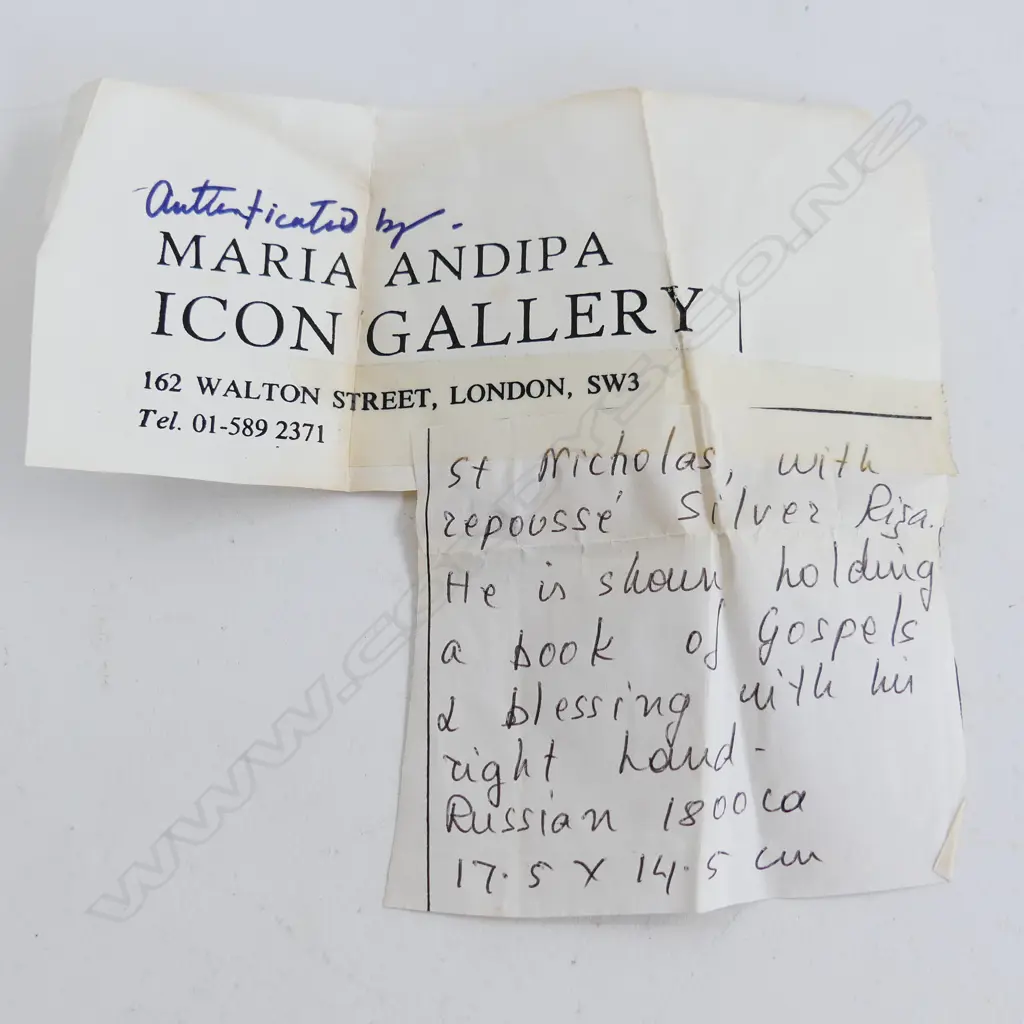 Authenticated by.
MARIA ANDIPA
ICON GALLERY
162 WALTON STREET, LONDON, SW3
Tel. 01-589 2371
St Nicholas, with
repoussé Silver Riza.
He is shown holding
a book of Gospels
& blessing with his
right hand -
Russian 1800 ca
17.5 x 14.5 cm